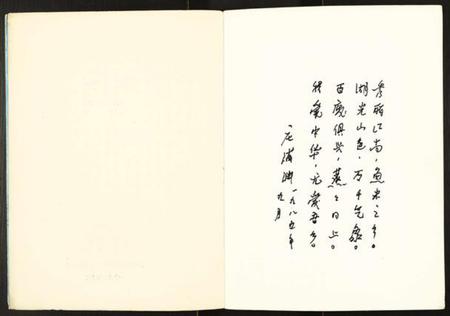 秀丽江南，鱼米之乡。
湖光山色，万千气象。
百废俱兴，蒸蒸日上。
我爱中华，尤爱吾乡。
一九八五年
九月